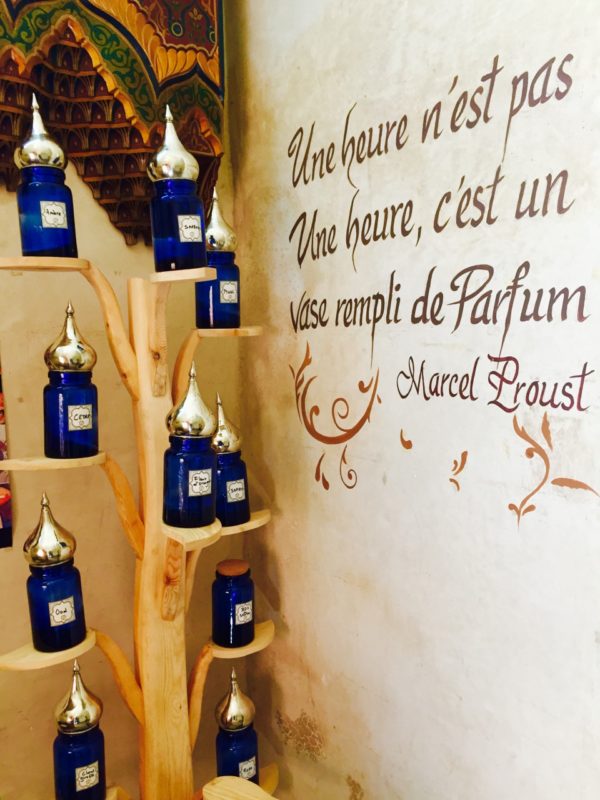 Une heure n'est pas
Une heure, c'est un
vase rempli de Parfum
Marcel Proust
Ambre
Oud